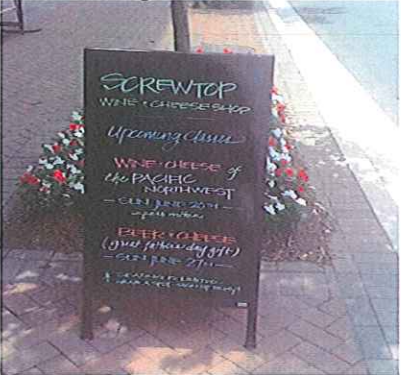 SCREWTOP
WINE • CHEESE SHOP
Upcoming Classes
WINE • CHEESE of
the PACIFIC
NORTHWEST
— SUN JUNE 20TH —
BEER • CHEESE
(great father's day gift)
— SUN JUNE 27TH —